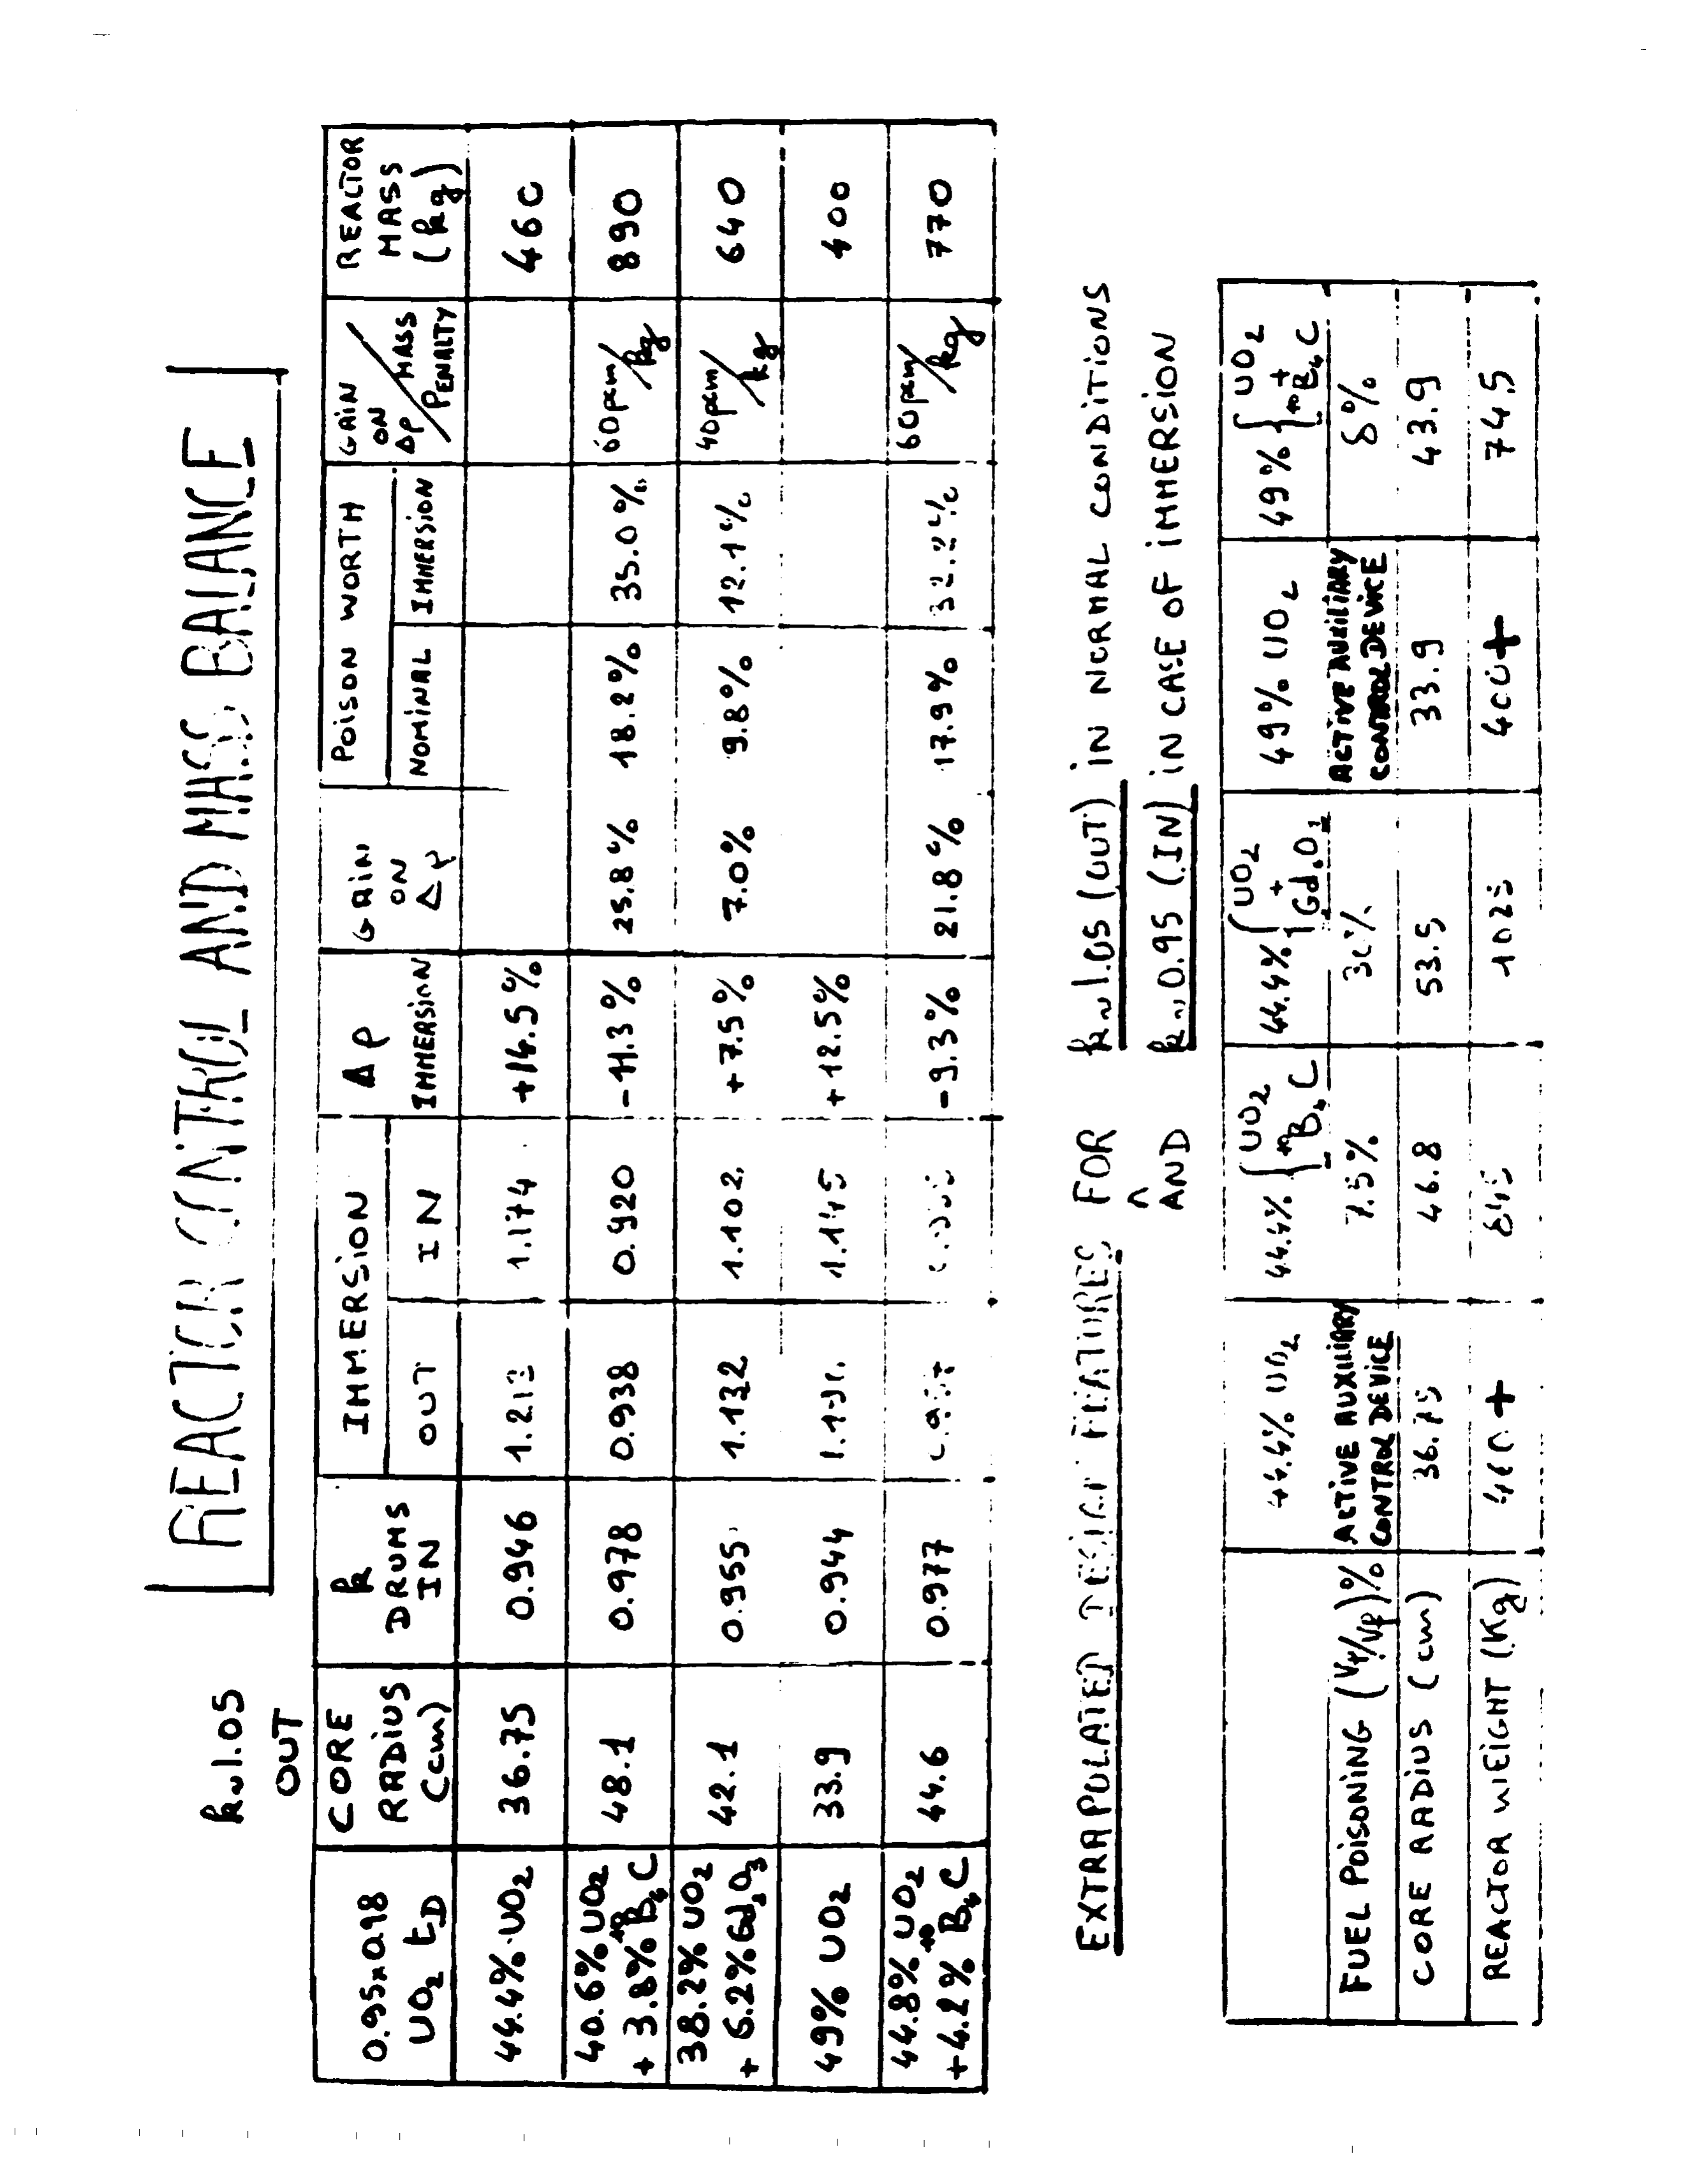 REACTOR CONTROL AND MASS BALANCE
k~1.05
OUT
0.95x0.98 UO2 tD | CORE RADIUS (cm) | k DRUMS IN | IMMERSION OUT | IN | Δρ IMMERSION | GAIN ON Δρ | POISON WORTH NOMINAL | IMMERSION | GAIN ON Δρ / MASS PENALTY | REACTOR MASS (kg)
44.4% UO2 | 36.75 | 0.946 | 1.213 | 1.174 | +14.5% | | | | | 460
40.6% UO2 + 3.8% 10B4C | 48.1 | 0.978 | 0.938 | 0.920 | -11.3% | 25.8% | 18.2% | 35.0% | 60pcm/kg | 890
38.2% UO2 + 6.2% Gd2O3 | 42.1 | 0.955 | 1.132 | 1.102 | +7.5% | 7.0% | 9.8% | 12.1% | 40pcm/kg | 640
49% UO2 | 33.9 | 0.944 | | 1.145 | +12.5% | | | | | 400
44.8% UO2 + 4.2% 10B4C | 44.6 | 0.977 | | | -9.3% | 21.8% | 17.9% | 32.2% | 60pcm/kg | 770
EXTRAPOLATED DESIGN FEATURES FOR k~1.05 (OUT) IN NORMAL CONDITIONS
AND k~0.95 (IN) IN CASE OF IMMERSION
44.4% UO2 | 44.4% { UO2 + 10B4C | 44.4% { UO2 + Gd2O3 | 49% UO2 | 49% { UO2 + 10B4C
FUEL POISONING (Vp/Vf)% | ACTIVE AUXILIARY CONTROL DEVICE | 7.5% | 30% | ACTIVE AUXILIARY CONTROL DEVICE | 8%
CORE RADIUS (cm) | 36.75 | 46.8 | 53.5 | 33.9 | 43.9
REACTOR WEIGHT (Kg) | 460+ | 845 | 1025 | 400+ | 745